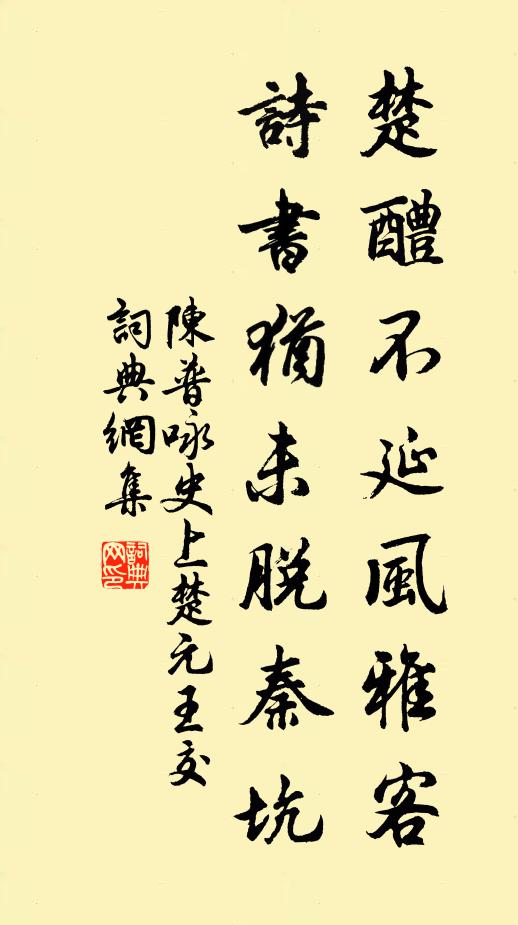 楚醴不延風雅客
詩書猶未脫秦坑
陳普咏史上楚元王交
詞典網集
詞典网印